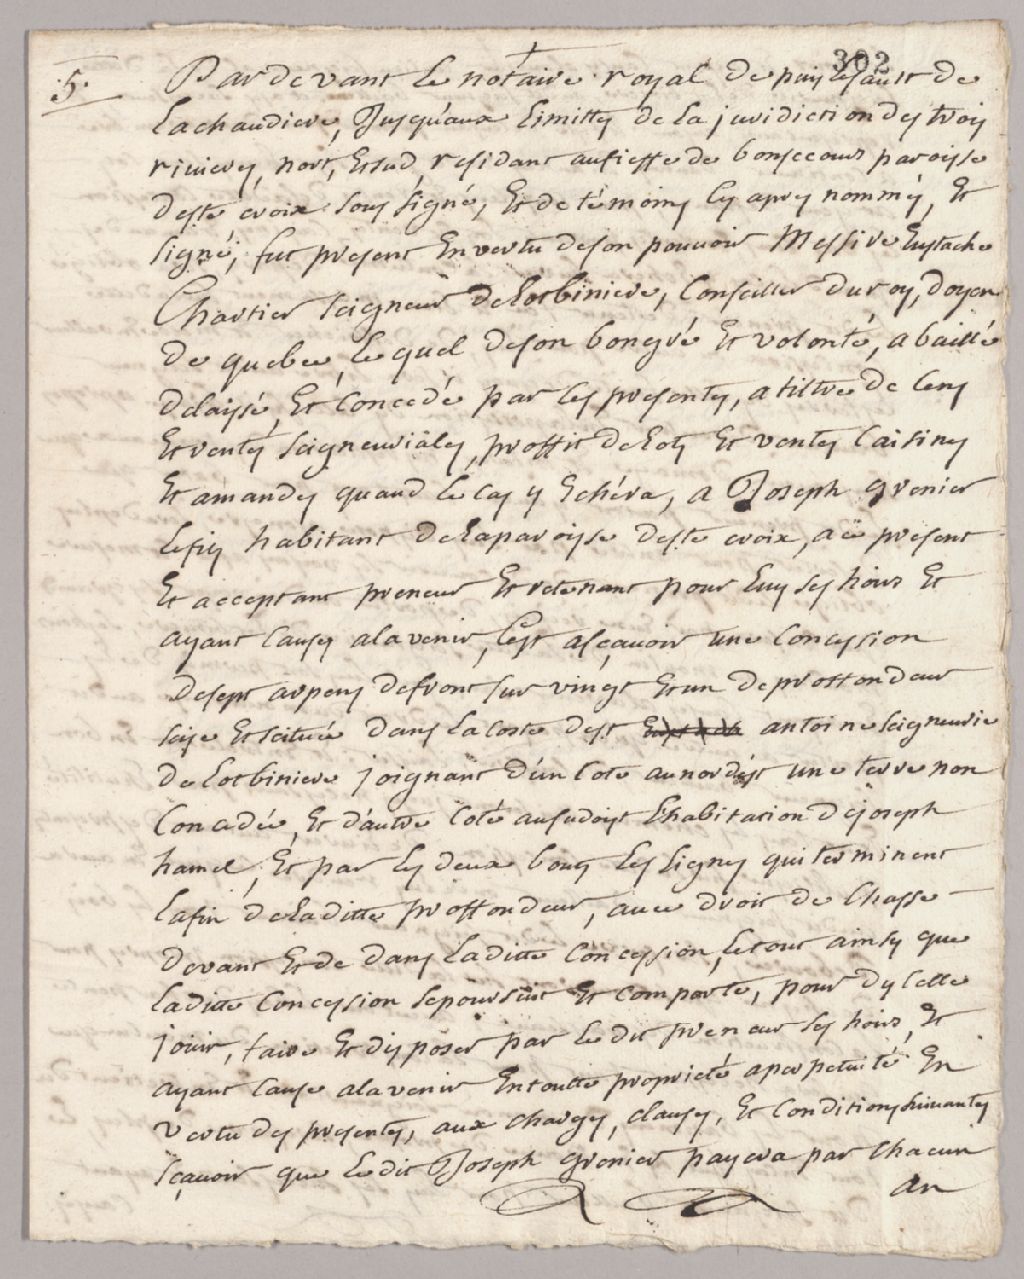 302
5.
Pardevant le notaire royal depuis le sault de
Lachaudiere, Jusqu'aux Limittes de la juridiction des trois
rivieres, nort, Et sud, residant au fieffe de bonsecours paroisse
de ste croix sous signé, Et de témoins Cy apres nommés, Et
signé, fut present En vertu de son pouvoir Messire Eustache
Chartier seigneur de Lotbiniere, Conseiller du roy, doyen
de quebec, lequel de son bongré Et volonté, a baillé
delaissé, Et Concedé par les presentes, a tiltre de Cens
Et rentes seigneurialles, proffit de Lots Et ventes saisines
Et amandes quand le cas y Echéra, a Joseph grenier
le fils habitant de la paroisse de ste croix, a ce present
Et acceptant preneur Et retenant pour Luy ses hoirs Et
ayant Causes a lavenir, C'est asçavoir une Concession
de sept arpens de front sur vingt Et un de proffondeur
size Et scituée dans la Coste de st antoine seigneurie
de Lotbiniere joignant d'un Coté au nordest une terre non
Concedée, Et d'autre Coté au sudoist L'habitation de joseph
hamel, Et par les deux bouts les lignes qui terminent
la fin de la ditte proffondeur, avec droit de Chasse
devant Et de dans La ditte Concession, le tout ainsy que
La ditte Concession se poursuit Et comporte, pour d'ycelle
jouir, faire Et disposer par le dit preneur ses hoirs, Et
ayant Cause a lavenir En toutte proprieté a perpetuité En
vertu des presentes, aux charges, clauses, Et Conditions suivantes
sçavoir que le dit Joseph grenier payera par chacun
an